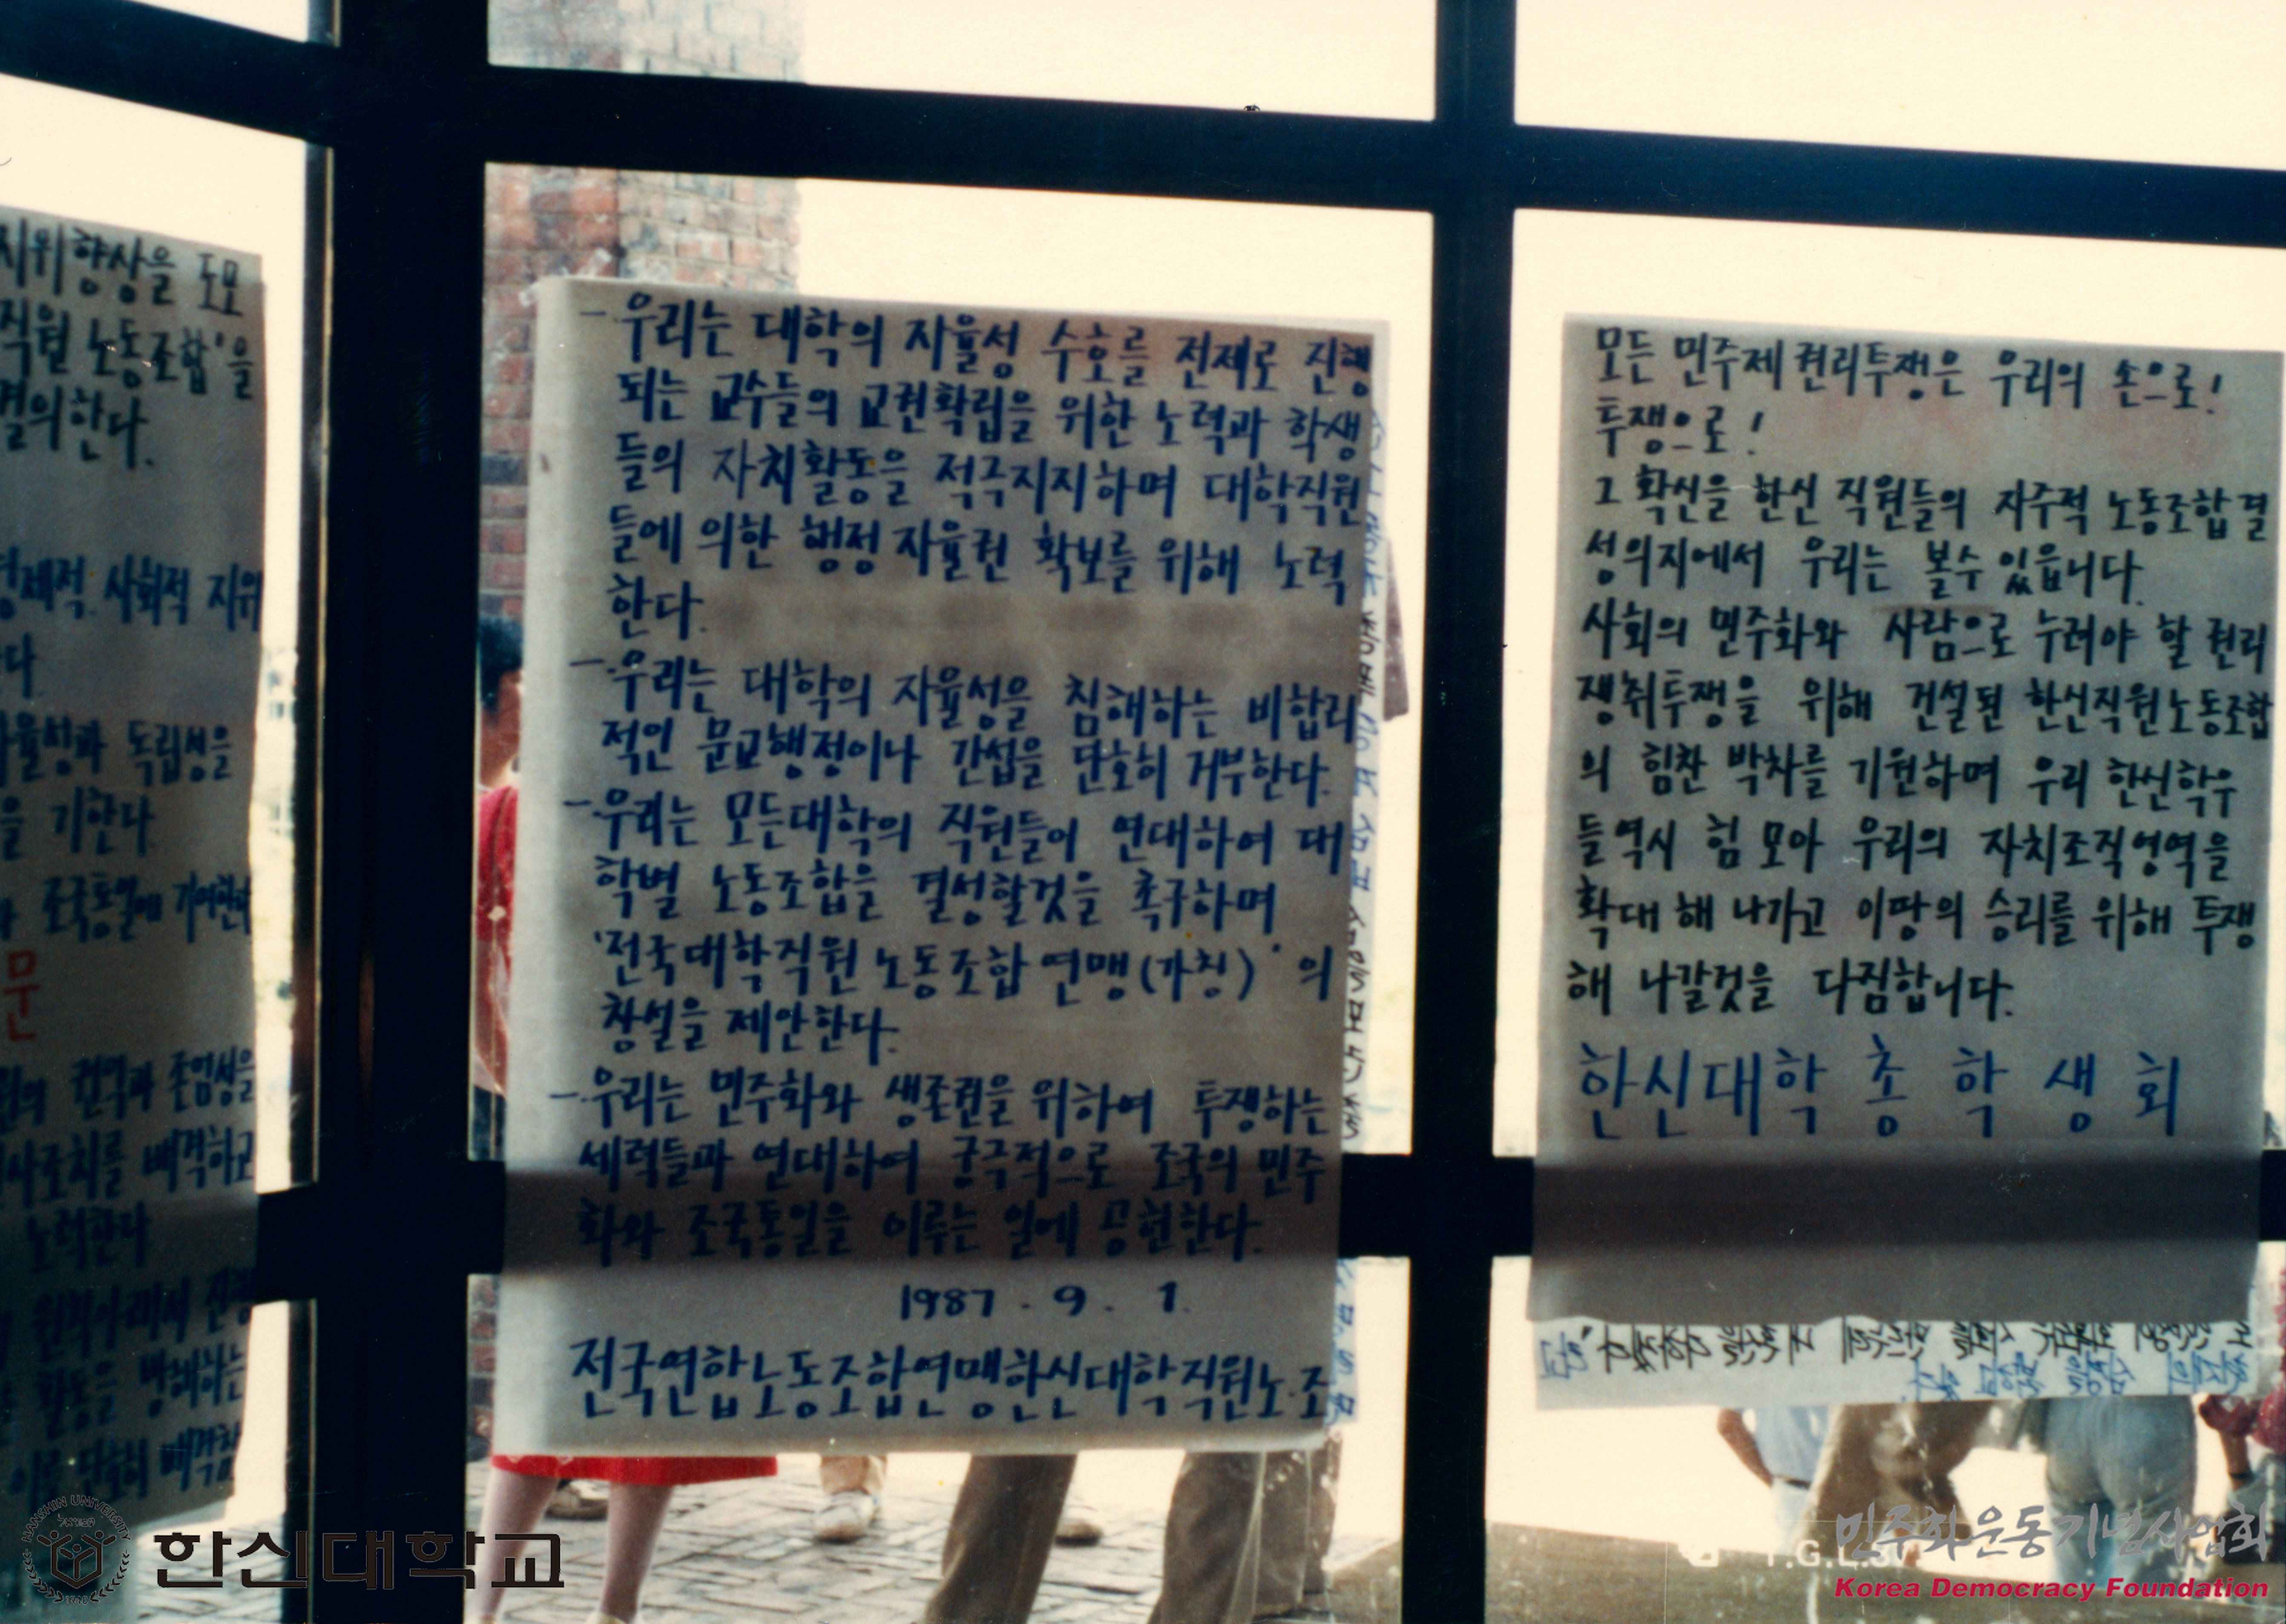 지위향상을 도모
직원 노동조합'을
결의한다.
경제적. 사회적 지위
다.
자율성과 독립성을
을 기한다.
조국통일에 기여한다
문
권익과 존엄성을
배격하고
노력한다
원칙아래서
활동을 방해하는
단호히 배격함
-.우리는 대학의 자율성 수호를 전제로 진행
되는 교수들의 교권확립을 위한 노력과 학생
들의 자치활동을 적극지지하며 대학직원
들에 의한 행정 자율권 확보를 위해 노력
한다.
-.우리는 대학의 자율성을 침해하는 비합리
적인 문교행정이나 간섭을 단호히 거부한다.
-.우리는 모든대학의 직원들이 연대하여 대
학별 노동조합을 결성할것을 촉구하며
'전국대학직원 노동조합 연맹(가칭)'의
창설을 제안한다.
-.우리는 민주화와 생존권을 위하여 투쟁하는
세력들과 연대하여 궁극적으로 조국의 민주
화와 조국통일을 이루는 일에 공헌한다.
1987. 9. 1.
전국연합노동조합연맹한신대학직원노.조
모든 민주제권리투쟁은 우리의 손으로!
투쟁으로!
그 확신을 한신 직원들의 자주적 노동조합 결
성의지에서 우리는 볼수 있읍니다.
사회의 민주화와 사람으로 누려야 할 권리
쟁취투쟁을 위해 건설된 한신직원노동조합
의 힘찬 박차를 기원하며 우리 한신학우
들역시 힘 모아 우리의 자치조직영역을
확대 해 나가고 이땅의 승리를 위해 투쟁
해 나갈것을 다짐합니다.
한신대학 총학생회
HANSHIN UNIVERSITY
한신대학교
민주화운동기념사업회
Korea Democracy Foundation